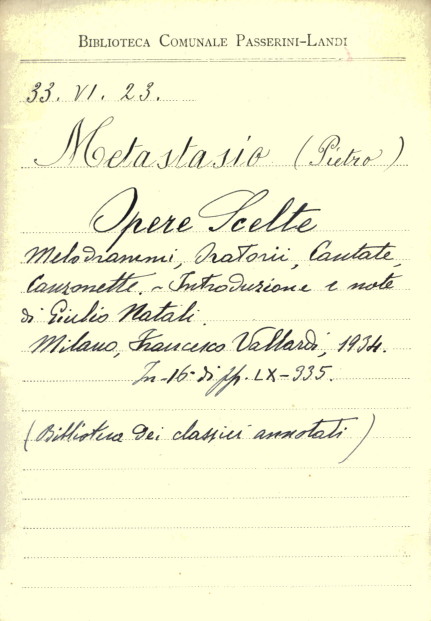 BIBLIOTECA COMUNALE PASSERINI-LANDI
33. VI. 23.
Metastasio (Pietro)
Opere Scelte
Melodrammi, Oratorii, Cantate,
Canzonette. - Introduzione e note
di Giulio Natali.
Milano, Francesco Vallardi, 1934.
In-16- di pp. LX-335.
(Biblioteca dei classici annotati)